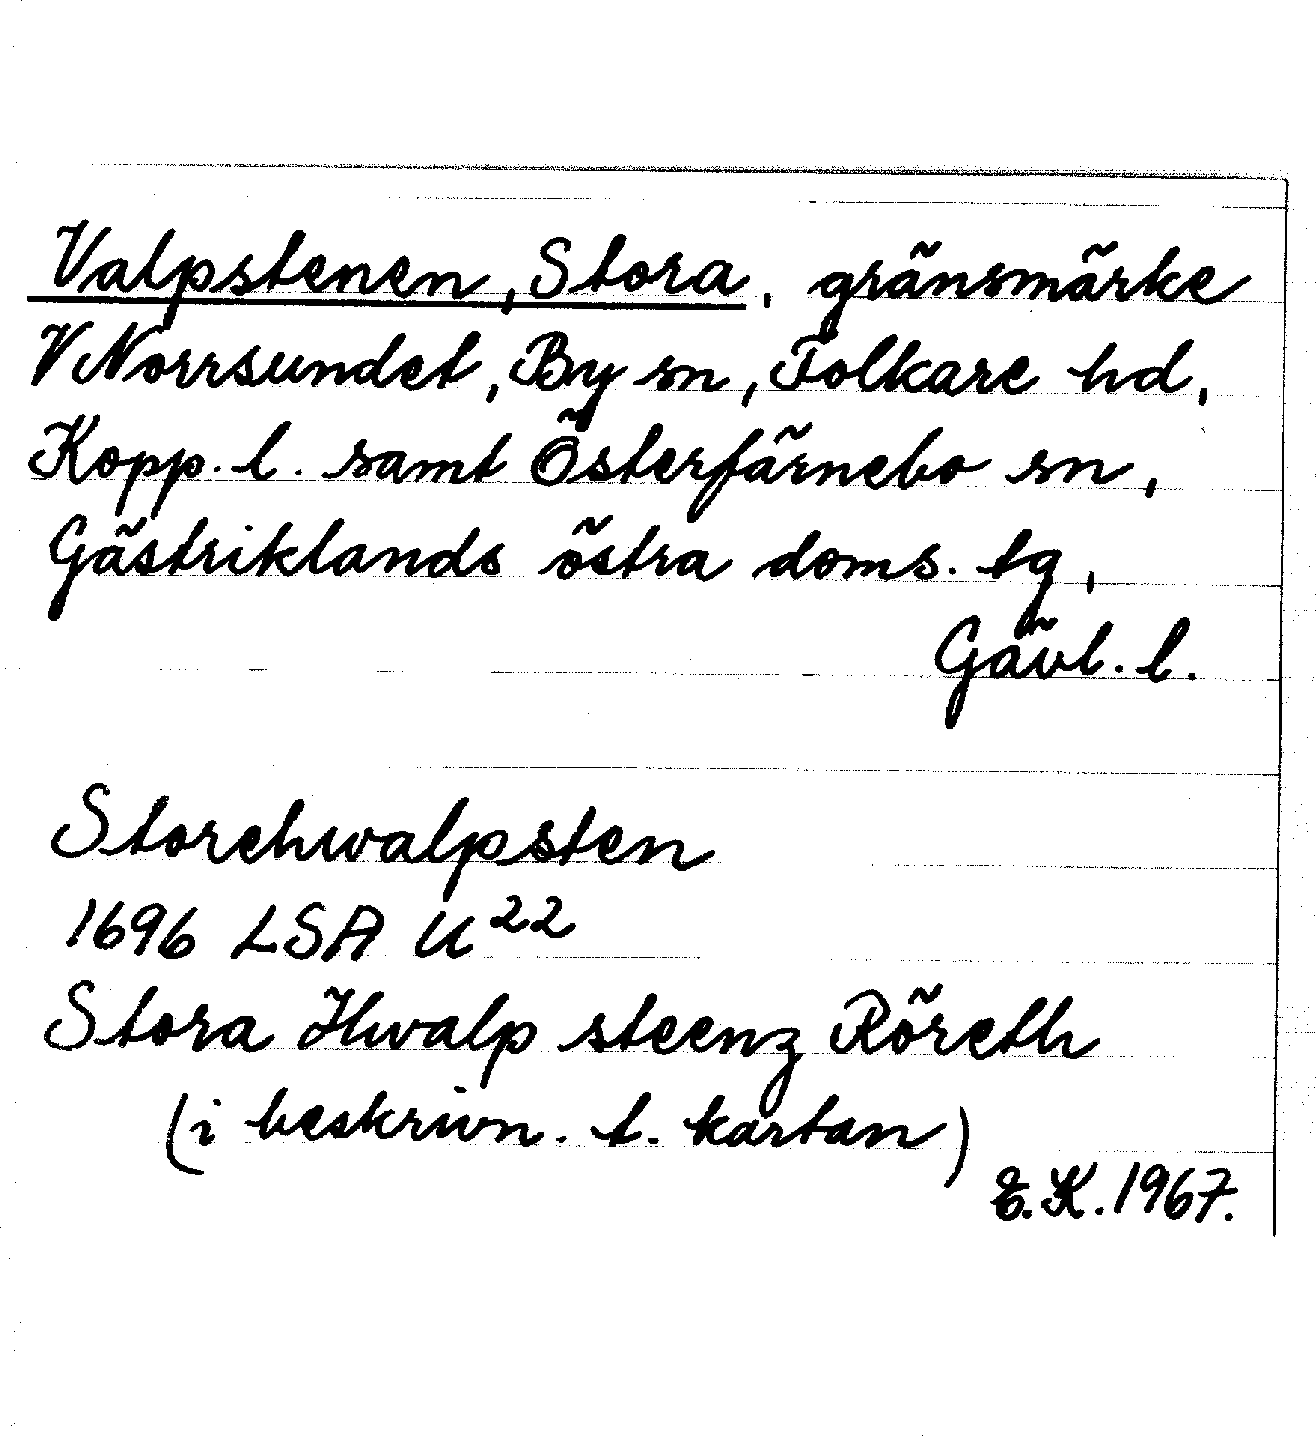 Valpstenen, Stora, gränsmärke
V Norrsundet, By sn, Folkare hd,
Kopp. l. samt Österfärnebo sn,
Gästriklands östra doms. tg,
Gävl. l.
Storehwalpsten
1696 LSA U²²
Stora Hwalp steenz Röreth
(i beskrivn. t. kartan)
E.K. 1967.